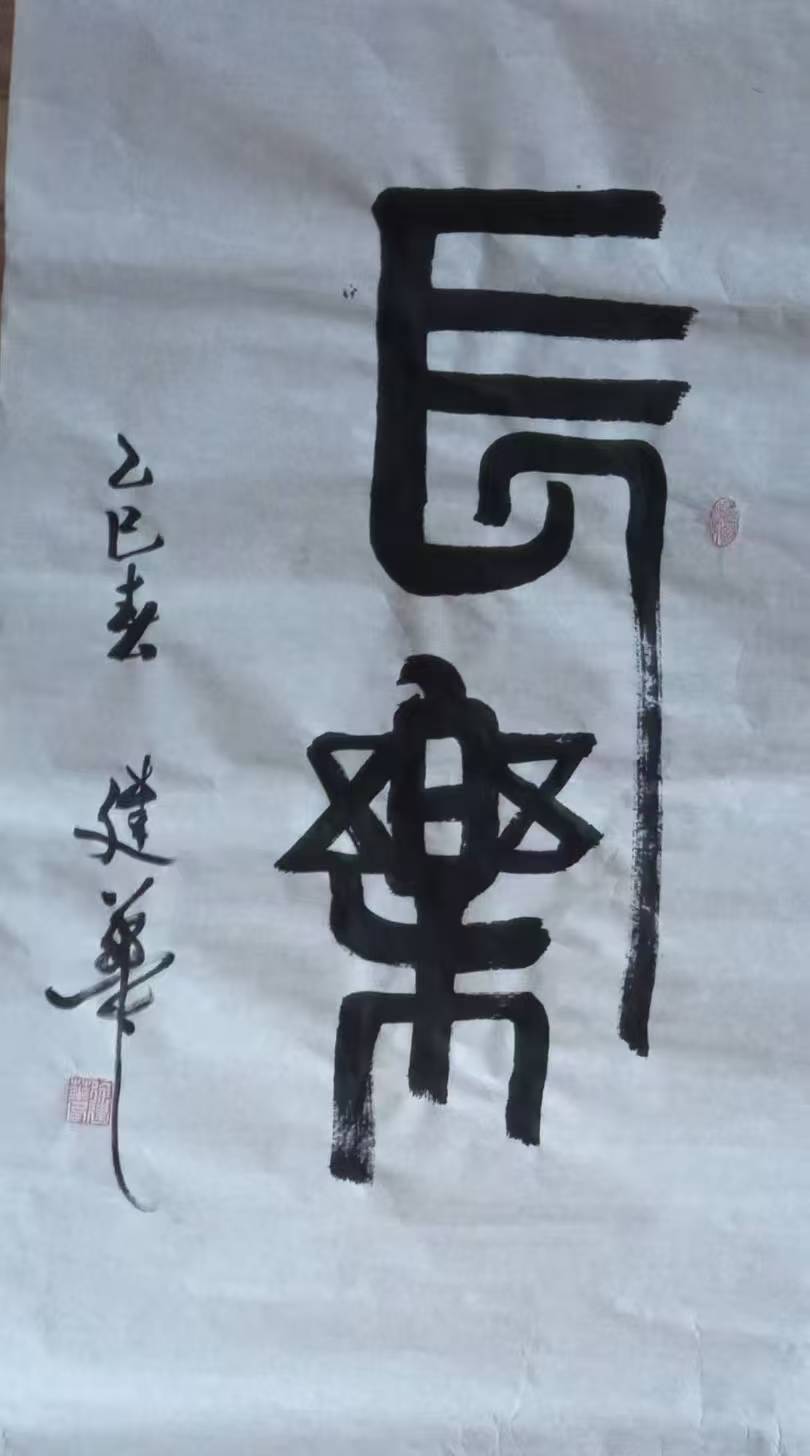 長樂
乙巳春 建華